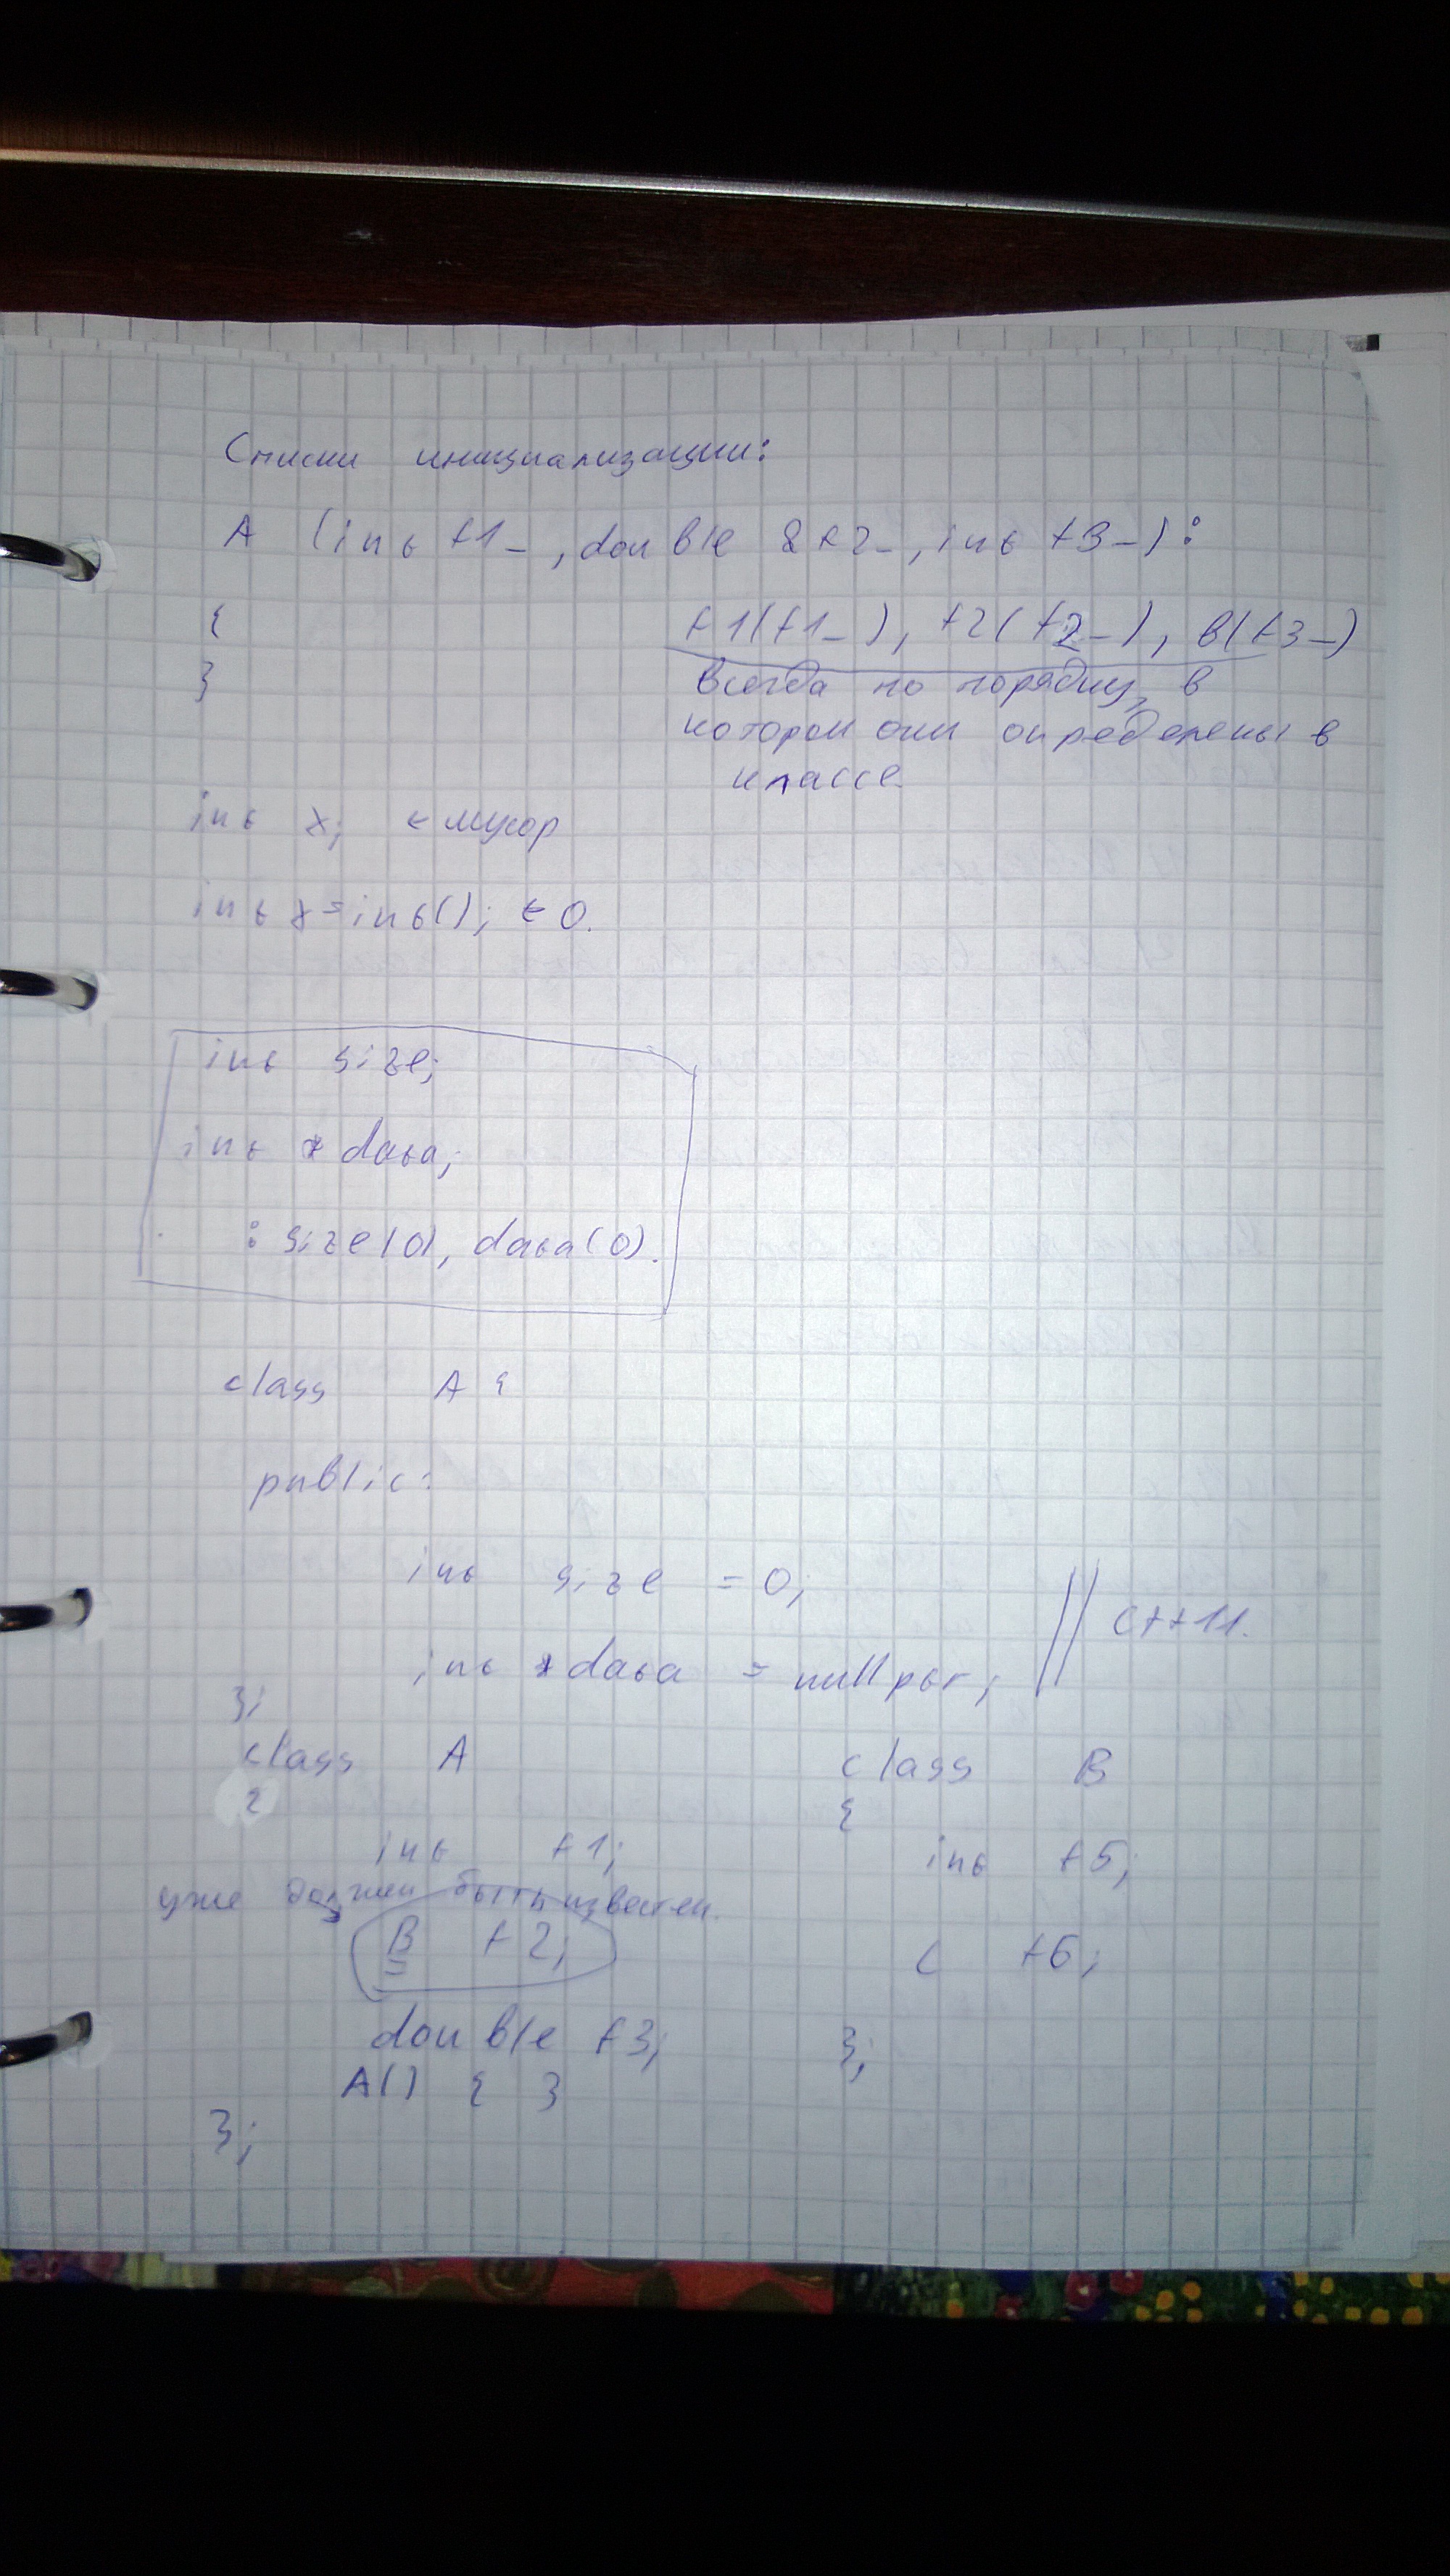 Списки инициализации:
A (int f1_, double &f2_, int f3_):
{ f1(f1_), f2(f2_), B(f3_)
} Всегда по порядку, в
котором они определены в
классе.
int x; ← мусор
int x=int(); ← 0.
int size;
int *data;
: size(0), data(0).
class A {
public:
int size = 0;
// C++11.
int *data = nullptr;
};
class A class B
{ {
int f1; int f5;
уже должен быть известен.
B f2; C f6;
double f3; };
A() { }
};